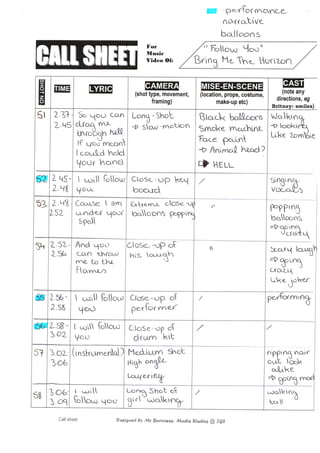 performance
narrative
balloons
CALL SHEET
For
Music
Video Of:
"Follow You"
Bring Me The Horizon
TIME
LYRIC
CAMERA
(shot type, movement,
framing)
MISE-EN-SCENE
(location, props, costume,
make-up etc)
CAST
(note any
directions, eg
Britney: smiles)
51 2.37- So you can Long-Shot Black balloons Walking
2.45 drag me → slow-motion Smoke machine → looking
through hell Face paint like zombie
If you meant → Animal head?
I could hold → HELL
your hand
52 2.45- I will follow Close-up key / singing
2.48 you board vocals
53 2.48 Cause I am Extreme close-up / popping
2.52 under your balloons popping balloons
spell → going
crazy
54 2.52- And you Close-up of scary laugh
2.56 can throw his laugh → going
me to the crazy
flames like joker
55 2.56- I will follow Close-up of / performing
2.58 you performer
56 2.58- I will follow Close-up of /
3.02 you drum kit
57 3.02 (instrumental) Medium Shot ripping hair
3.06 High angle out look
Layering alike
→ going mad
58 3.06- I will Long Shot of / walking
3.09 follow you girl walking tall
Call sheet
Designed By Mr
Media Studies @